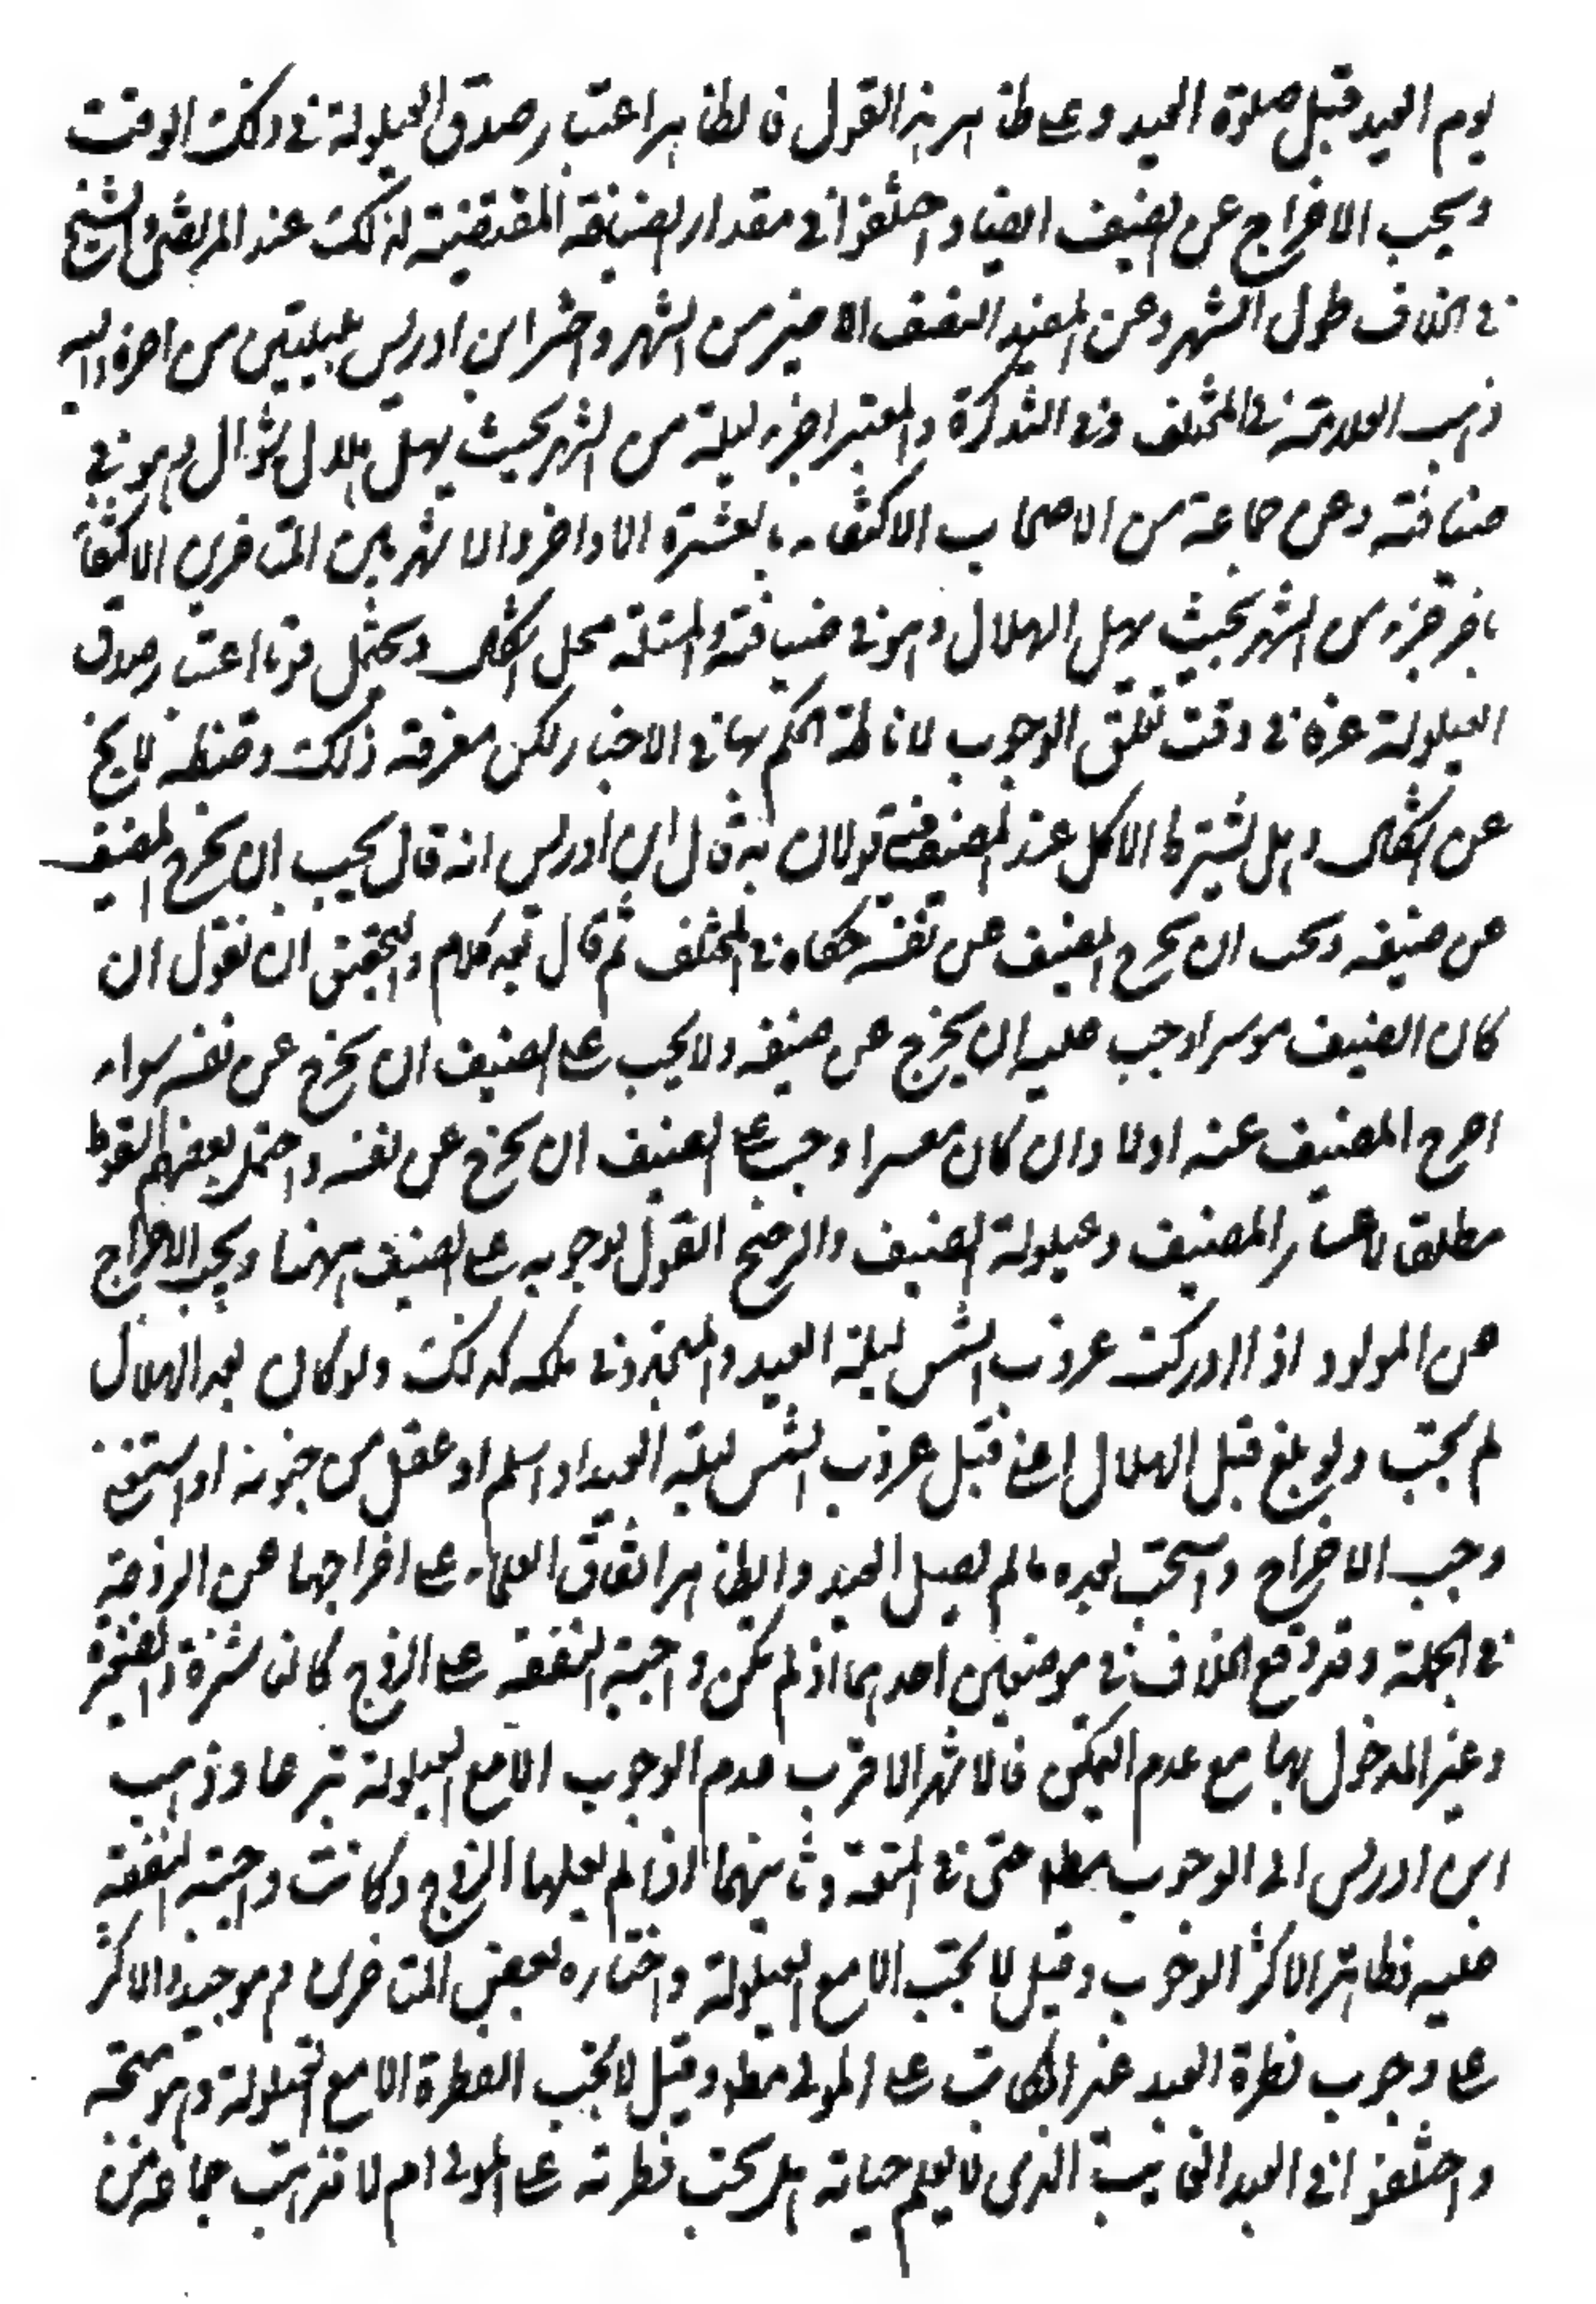 يوم العيد قبل صلوة العيد وعلى ظاهر هذا القول فالظاهر اعتبار صدق العيلولة في ذلك الوقت
ويجب الاخراج عن الضيف ايضا واختلفوا في مقدار الضيافة المقتضية لذلك عند المرتضى والشيخ
في الخلاف طول الشهر وعن المفيد النصف الاخير من الشهر واجتزا ابن ادريس بليلتين من اخره واليه
ذهب العلامة في المختلف وفي التذكرة والمعتبر اخر ليلة من الشهر بحيث يهل هلال شوال وهو في
ضيافته وعن جماعة من الاصحاب الاكتفاء بالعشرة الاواخر والاشهر بين المتاخرين الاكتفاء
باخر جزء من الشهر بحيث يهل الهلال وهو في ضيافته والمسئلة محل اشكال ويحتمل قويا اعتبار صدق
العيلولة عرفا في وقت تعلق الوجوب لاناطة الحكم بها في الاخبار لكن معرفة ذلك وضبطه لا يخ
عن اشكال وهل يشترط الاكل عند المضيف فيه قولان به قال ابن ادريس انه قال يجب ان يخرج المضيف
عن ضيفه ويجب ان يخرج الضيف عن نفسه حكاه في المختلف ثم قال فيه كلام والتحقيق ان نقول ان
كان المضيف موسرا وجب عليه ان يخرج عن ضيفه ولا يجب على الضيف ان يخرج عن نفسه سواء
اخرج المضيف عنه اولا وان كان معسرا وجب على الضيف ان يخرج عن نفسه واحتمل بعضهم السقوط
مطلقا لاعسار المضيف وعيلولة الضيف والارجح القول بوجوبه على الضيف ههنا ويجب الاخراج
عن المولود اذا ادركت غروب الشمس ليلة العيد والمتجدد في ملكه كذلك ولو كان بعد الهلال
لم يجب ولو بلغ قبل الهلال اعني قبل غروب الشمس ليلة العيد او اسلم او عقل من جنونه او استغنى
وجب الاخراج واستحب بعده ما لم يصل العيد والظاهر اتفاق العلماء على اخراجها عن الزوجة
في الجملة وقد وقع الخلاف في موضعين احدهما اذ لم تكن واجبة النفقة على الزوج كالناشزة والصغيرة
وغير المدخول بها مع عدم التمكين فالاشهر الاقرب عدم الوجوب الا مع العيلولة تبرعا وذهب
ابن ادريس الى الوجوب مطلقا حتى في المتعة وثانيهما اذا لم يعلها الزوج وكانت واجبة النفقة
عليه فظاهر الاكثر الوجوب وقيل لا يجب الا مع العيلولة واختاره بعض المتاخرين وهو جيد والاكثر
على وجوب فطرة العبد غير المكاتب على المولى مطلقا وقيل لا يجب الفطرة الا مع العيلولة وهو متجه
واختلفوا في العبد الغائب الذي لا يعلم حياته هل يجب فطرته على المولى ام لا فذهب جماعة من